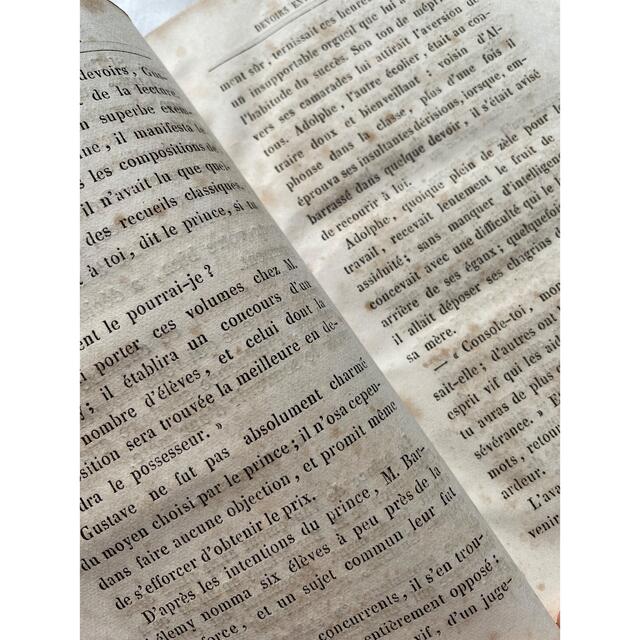 devoirs, Gus-
de la lecture
superbe exem
, il manifesta
les compositions
il n'avait lu que
des recueils classiques.
à toi, dit le prince, si tu
ent le pourrai-je?
porter ces volumes chez M.
; il établira un concours d'un
nombre d'élèves, et celui dont la
position sera trouvée la meilleure en de-
dra le possesseur. »
Gustave ne fut pas absolument charmé
du moyen choisi par le prince; il n'osa cepen-
dant faire aucune objection, et promit même
de s'efforcer d'obtenir le prix.
D'après les intentions du prince, M. Bar-
élemy nomma six élèves à peu près de la
force, et un sujet commun leur fut
concurrents, il s'en trou-
entièrement opposé;
vif, d'un juge-
DEVOIRS
ment sûr, ternissait ces heureu
un insupportable orgueil que lui a
l'habitude du succès. Son ton de mépris
vers ses camarades lui attirait l'aversion de
tous. Adolphe, l'autre écolier, était au con-
traire doux et bienveillant; voisin d'Al-
phonse dans la classe, plus d'une fois il
éprouva ses insultantes dérisions, lorsque, em-
barrassé dans quelque devoir, il s'était avisé
de recourir à lui.
Adolphe, quoique plein de zèle pour le
travail, recevait lentement le fruit de
assiduité; sans manquer d'intelligen
concevait avec une difficulté qui le
arrière de ses égaux; quelquefois
il allait déposer ses chagrins d
sa mère.
— « Console-toi, mon
sait-elle; d'autres ont
esprit vif qui les aid
tu auras de plus
sévérance. » E
mots, retour
ardeur.
L'ava
venir